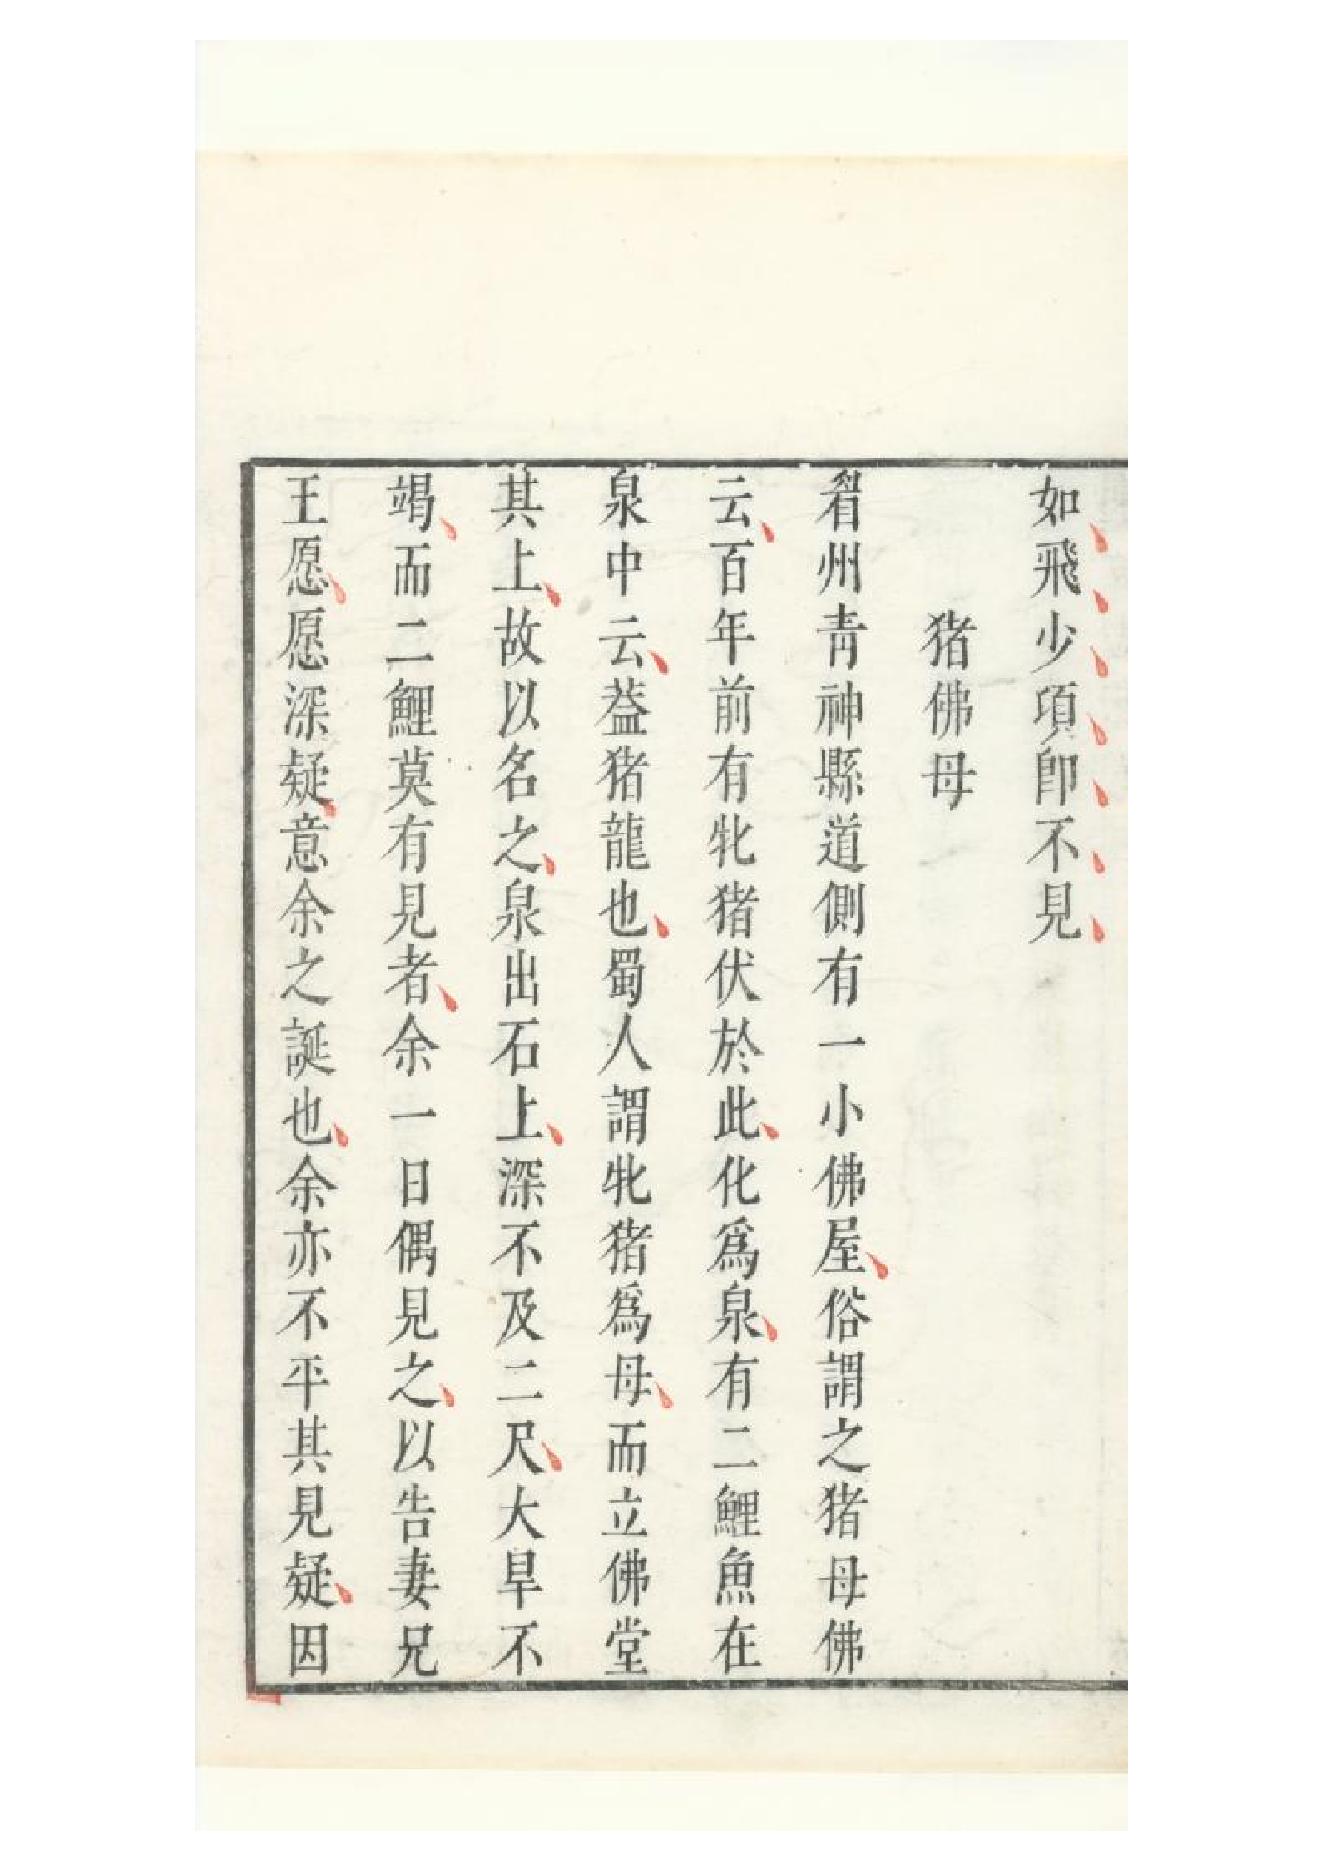 如飛少項卽不見
猪佛母
眉州靑神縣道側有一小佛屋俗謂之猪母佛
云百年前有牝猪伏於此化爲泉有二鯉魚在
泉中云葢猪龍也蜀人謂牝猪爲母而立佛堂
其上故以名之泉出石上深不及二尺大旱不
竭而二鯉莫有見者余一日偶見之以告妻兄
王愿愿深疑意余之誕也余亦不平其見疑因